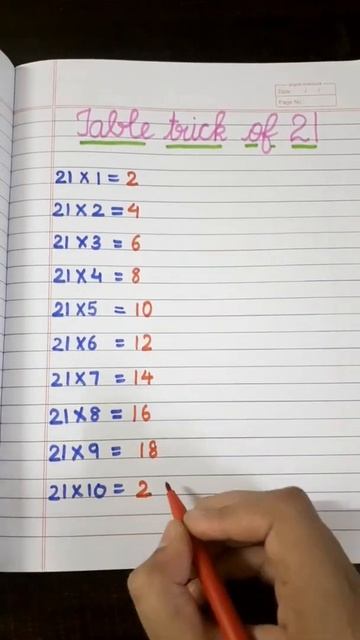 Date / /
Page No.
Table trick of 21
21 X 1 = 2
21 X 2 = 4
21 X 3 = 6
21 X 4 = 8
21 X 5 = 10
21 X 6 = 12
21 X 7 = 14
21 X 8 = 16
21 X 9 = 18
21 X 10 = 2